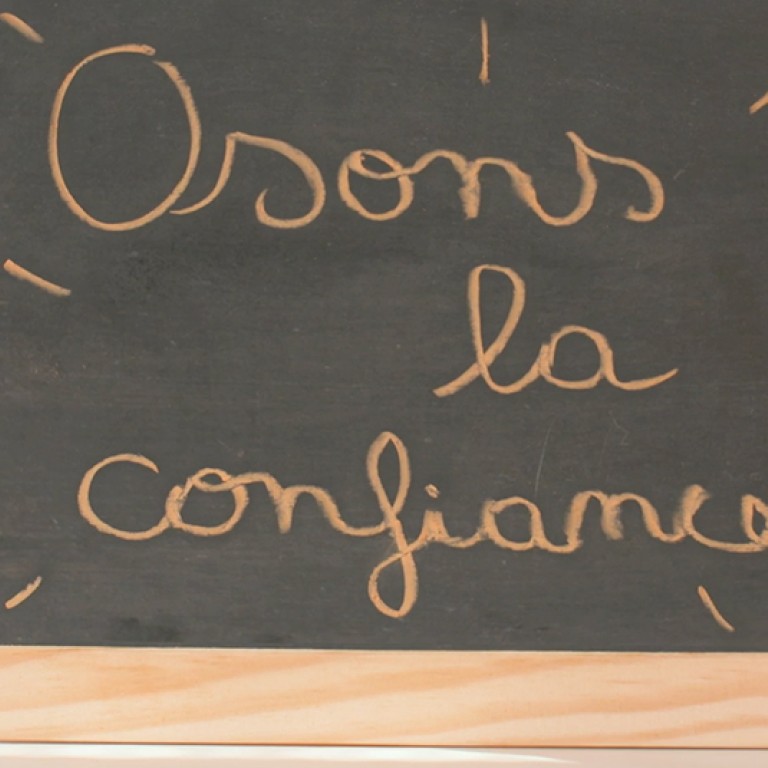 Osons
la
confiance